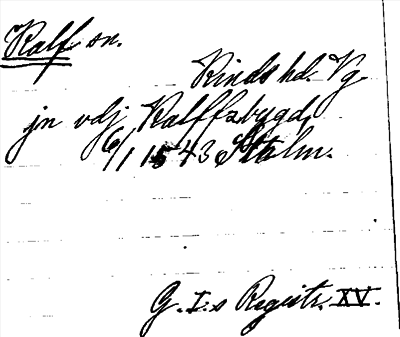 Kalf sn.
Kinds hd. Vg.
jn vdj Kalffzbygd,
6/1 1543 Stolm.
G. I:s Registr. XV.